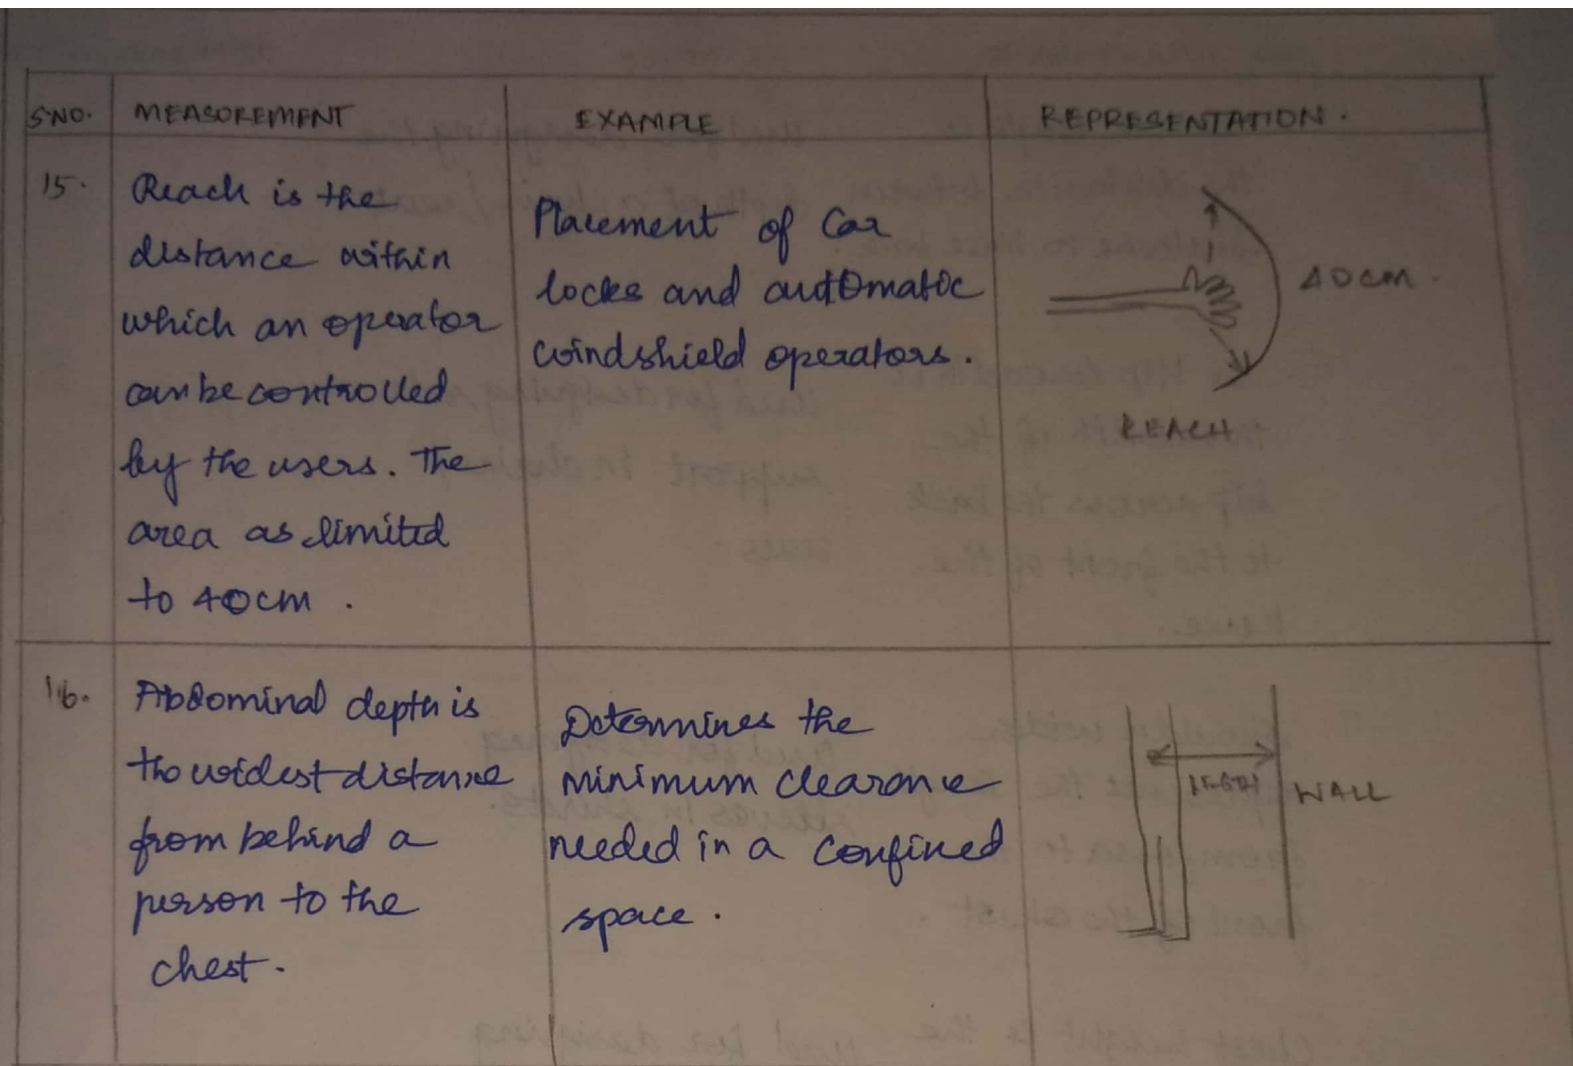 S.NO. MEASUREMENT EXAMPLE REPRESENTATION.
15. Reach is the
distance within
which an operator
can be controlled
by the users. The
area as limited
to 40cm.
Placement of Car
locks and automatic
windshield operators.
40cm.
REACH
16. Abdominal depth is
the widest distance
from behind a
person to the
chest.
Determines the
minimum clearance
needed in a confined
space.
WALL